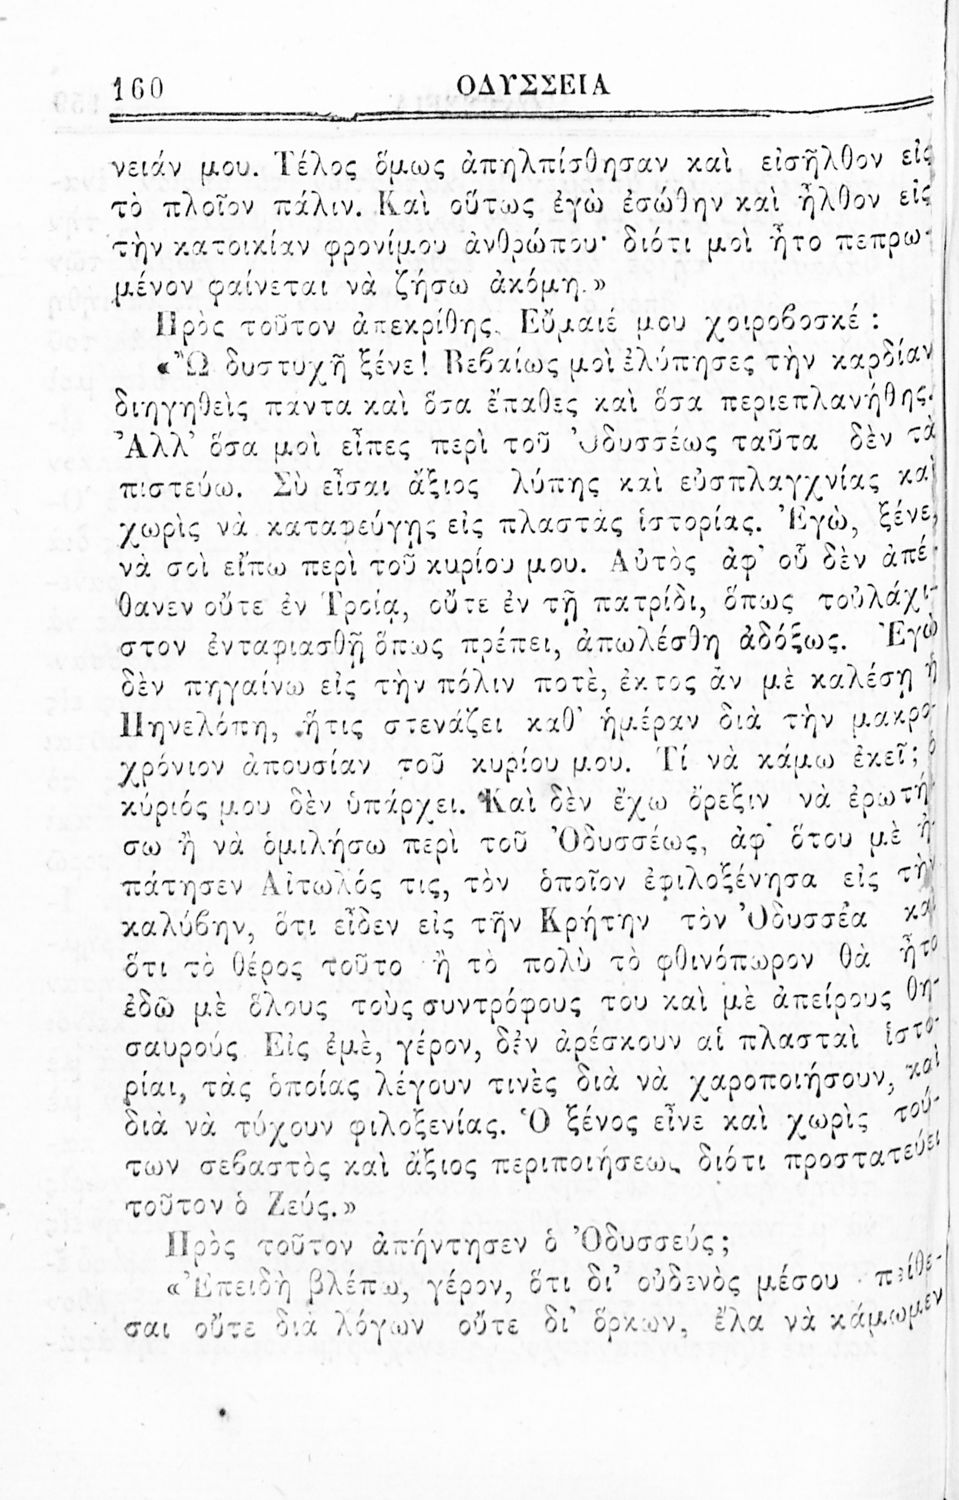 160 ΟΔΥΣΣΕΙΑ
νειάν μου. Τέλος ὅμως ἀπηλπίσθησαν καὶ εἰσῆλθον εἰς
τὸ πλοῖον πάλιν. Καὶ οὕτως ἐγὼ ἐσώθην καὶ ἦλθον εἰς
τὴν κατοικίαν φρονίμου ἀνθρώπου· διότι μοὶ ἦτο πεπρω-
μένον φαίνεται νὰ ζήσω ἀκόμη.»
Πρὸς τοῦτον ἀπεκρίθης, Εὔμαιέ μου χοιροβοσκέ :
«Ὦ δυστυχῆ ξένε! Βεβαίως μοὶ ἐλύπησες τὴν καρδίαν
διηγηθεὶς πάντα καὶ ὅσα ἔπαθες καὶ ὅσα περιεπλανήθης.
Ἀλλ' ὅσα μοὶ εἶπες περὶ τοῦ Ὀδυσσέως ταῦτα δὲν τὰ
πιστεύω. Σὺ εἶσαι ἄξιος λύπης καὶ εὐσπλαγχνίας καὶ
χωρὶς νὰ καταφεύγῃς εἰς πλαστὰς ἱστορίας. Ἐγὼ, ξένε,
νὰ σοὶ εἴπω περὶ τοῦ κυρίου μου. Αὐτὸς ἀφ' οὗ δὲν ἀπέ-
θανεν οὔτε ἐν Τροίᾳ, οὔτε ἐν τῇ πατρίδι, ὅπως τοὐλάχι-
στον ἐνταφιασθῇ ὅπως πρέπει, ἀπωλέσθη ἀδόξως. Ἐγὼ
δὲν πηγαίνω εἰς τὴν πόλιν ποτὲ, ἐκτος ἂν μὲ καλέσῃ ἡ
Πηνελόπη, ἥτις στενάζει καθ' ἡμέραν διὰ τὴν μακρο-
χρόνιον ἀπουσίαν τοῦ κυρίου μου. Τί νὰ κάμω ἐκεῖ; ὁ
κύριός μου δὲν ὑπάρχει. Καὶ δὲν ἔχω ὄρεξιν νὰ ἐρωτή-
σω ἢ νὰ ὁμιλήσω περὶ τοῦ Ὀδυσσέως, ἀφ' ὅτου μὲ ἠ-
πάτησεν Αἰτωλός τις, τὸν ὁποῖον ἐφιλοξένησα εἰς τὴν
καλύβην, ὅτι εἶδεν εἰς τῆν Κρήτην τὸν Ὀδυσσέα καὶ
ὅτι τὸ θέρος τοῦτο ἢ τὸ πολὺ τὸ φθινόπωρον θὰ ἦτο
ἐδῶ μὲ ὅλους τοὺς συντρόφους του καὶ μὲ ἀπείρους θη-
σαυρούς Εἰς ἐμὲ, γέρον, δὲν ἀρέσκουν αἱ πλασταὶ ἱστο-
ρίαι, τὰς ὁποίας λέγουν τινὲς διὰ νὰ χαροποιήσουν, καὶ
διὰ νὰ τύχουν φιλοξενίας. Ὁ ξένος εἶνε καὶ χωρὶς τού-
των σεβαστὸς καὶ ἄξιος περιποιήσεως διότι προστατεύει
τοῦτον ὁ Ζεύς.»
Πρὸς τοῦτον ἀπήντησεν ὁ Ὀδυσσεύς;
«Ἐπειδὴ βλέπω, γέρον, ὅτι δι' οὐδενὸς μέσου πείθε-
σαι οὔτε διὰ λόγων οὔτε δι' ὅρκων, ἔλα νὰ κάμωμεν